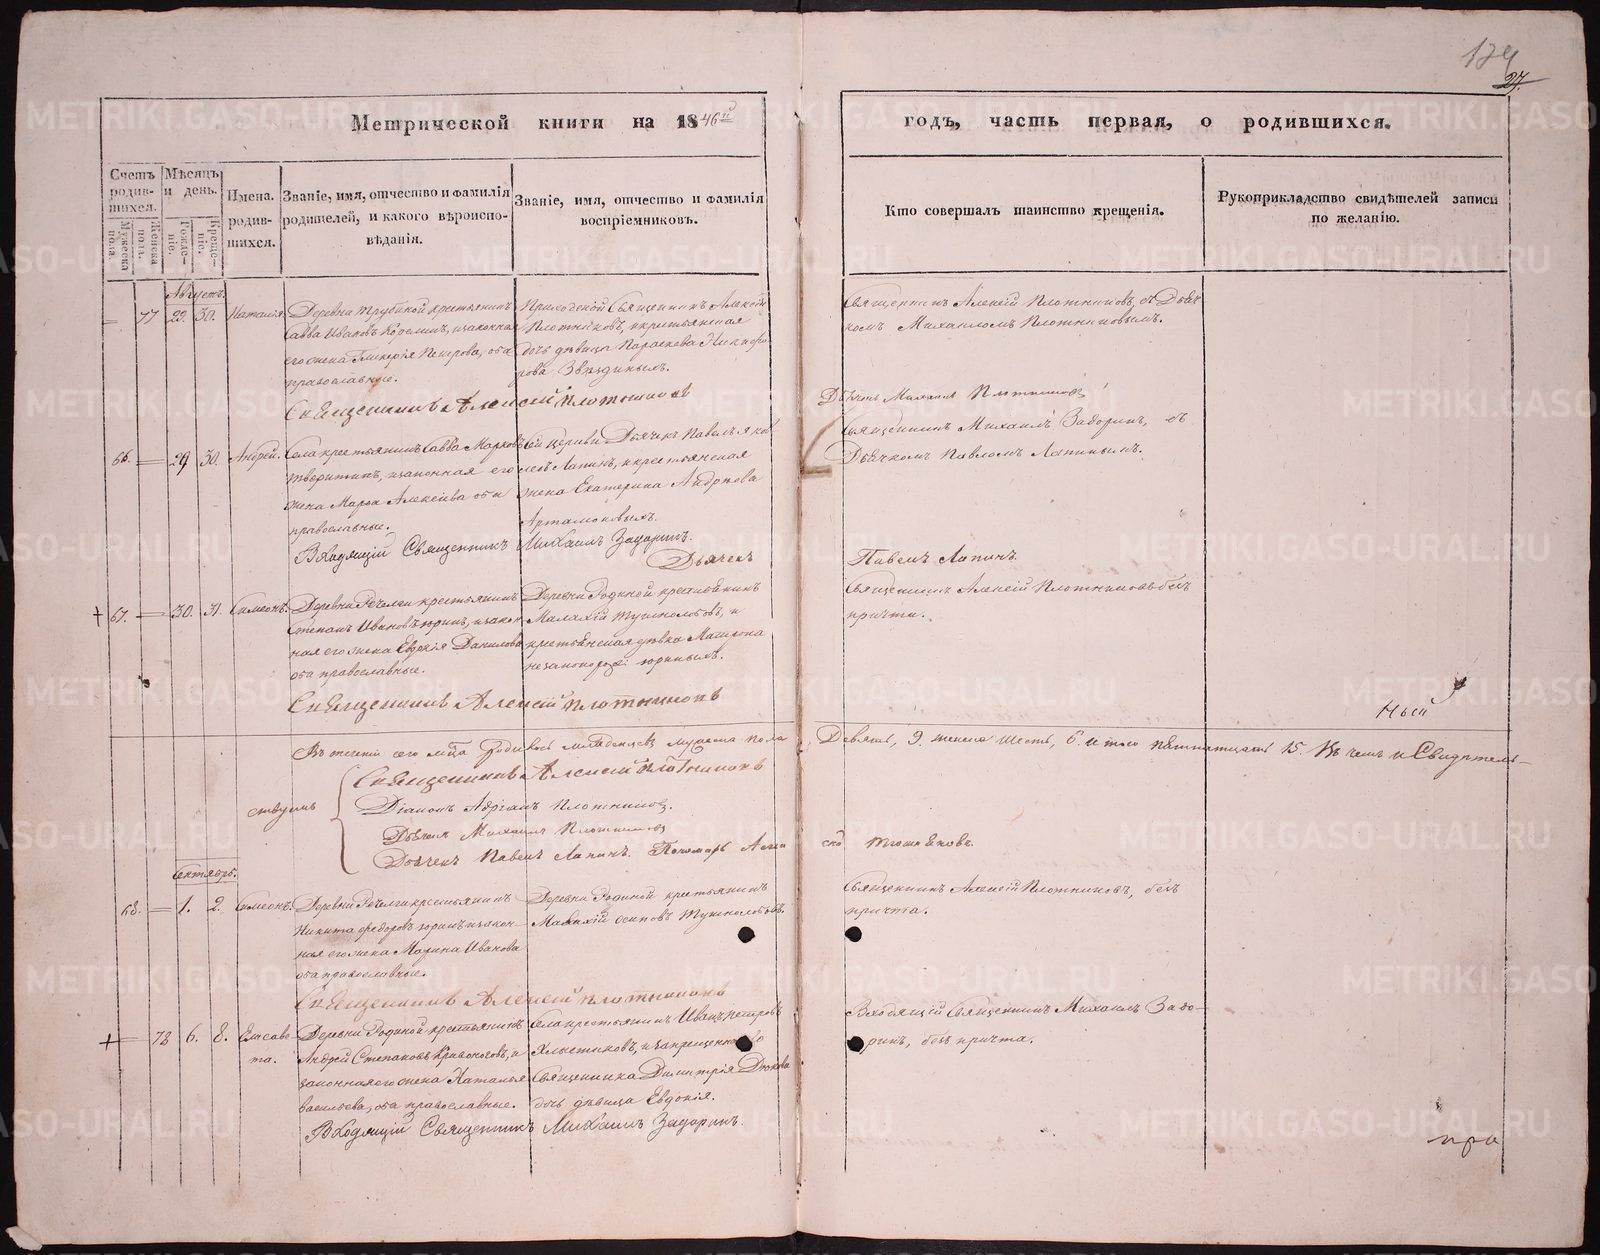 174
27.
Метрической книги на 1846й
годъ, часть первая, о родившихся.
Счетъ родившихся.
Мужеска пола.
Женска пола.
Мѣсяцъ и день.
Рожденіе.
Крещеніе.
Имена родившихся.
Званіе, имя, отчество и фамилія родителей, и какого вѣроисповѣданія.
Званіе, имя, отчество и фамилія воспріемниковъ.
Кто совершалъ таинство крещенія.
Рукоприкладство свидѣтелей записи по желанію.
Августъ.
77 29. 30. Наталія.
Деревни Трубиной крестьянинъ
Савва Ивановъ и законная
его жена Гликерія Петрова, оба
православные.
Приходскій Священникъ Алексій
Плотниковъ, и крестьянская
дочь дѣвица Параскева Никифо
рова Звѣздиныхъ.
Священникъ Алексій Плотниковъ, съ Дьяч
комъ Михаиломъ Плотниковымъ.
Священникъ Алексей Плотников
Дьячекъ Михаилъ Плотниковъ
66. 29. 30. Андрей.
Села крестьянинъ Савва Марковъ
и законная его
жена Марѳа Алексіева оба
православные.
сей церкви Дьячекъ Павелъ Яков
левъ Лапинъ, и крестьянская
жена Екатерина Андреева
Артамоновыхъ.
Священникъ Михаилъ Задоринъ, съ
Дьячкомъ Павломъ Лапинымъ.
Входящій Священникъ Михаилъ Задоринъ.
Дьячекъ Павелъ Лапинъ.
67. 30. 31. Симеонъ.
Деревни Речелги крестьянинъ
Степанъ Ивановъ Юринъ, и закон
ная его жена Евдокія Данилова
оба православные.
Деревни Родиной крестьянинъ
Малахій Тушнолобовъ, и
крестьянская дѣвка Матрона
незаконорож: Юриныхъ.
Священникъ Алексій Плотниковъ безъ
причта.
Священникъ Алексій Плотниковъ
Въ теченіи сего мѣца родилось младенцевъ мужеска пола Девять, 9. женска шесть, 6. и того пятнатцать 15. Въ чемъ и Свидѣтель-
ствуемъ
Священникъ Алексій Плотниковъ
Діаконъ Адріанъ Плотниковъ.
Дьячекъ Михаилъ Плотниковъ
Дьячекъ Павелъ Лапинъ. Пономарь
Сентябрь.
68. 1. 2. Симеонъ.
Деревни Речелги крестьянинъ
Никита Федоровъ Юринъ и закон
ная его жена Марина Иванова
оба православные.
Деревни Родиной крестьянинъ
Малахій Осиповъ Тушнолобовъ.
Священникъ Алексій Плотниковъ, безъ
причта.
Священникъ Алексій Плотниковъ
78 6. 8. Елисаве
та.
Деревни Родиной крестьянинъ
Андрей Степановъ Кривоноговъ, и
законная его жена Наталья
Васильева, оба православные.
Села крестьянинъ Иванъ Петровъ
Хлыстиковъ, и запрещеннаго
Священника Димитрія Дюкова
дочь дѣвица Евдокія.
Входящій Священникъ Михаилъ Задо-
ринъ, безъ причта.
Входящій Священникъ Михаилъ Задоринъ.
при
METRIKI.GASO-URAL.RU